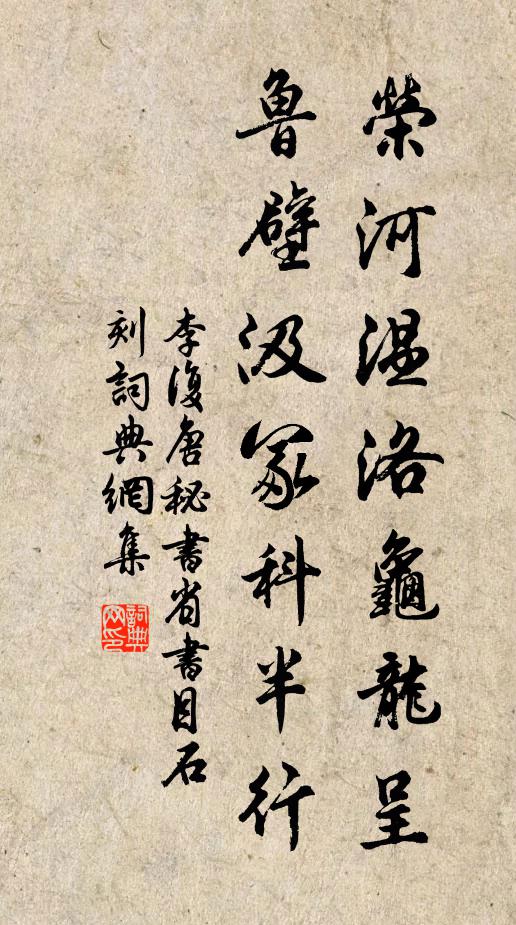 榮河温洛龜龍呈
魯壁汲冢科半行
李復唐秘書省書目石
刻詞典網集
詞典
网印